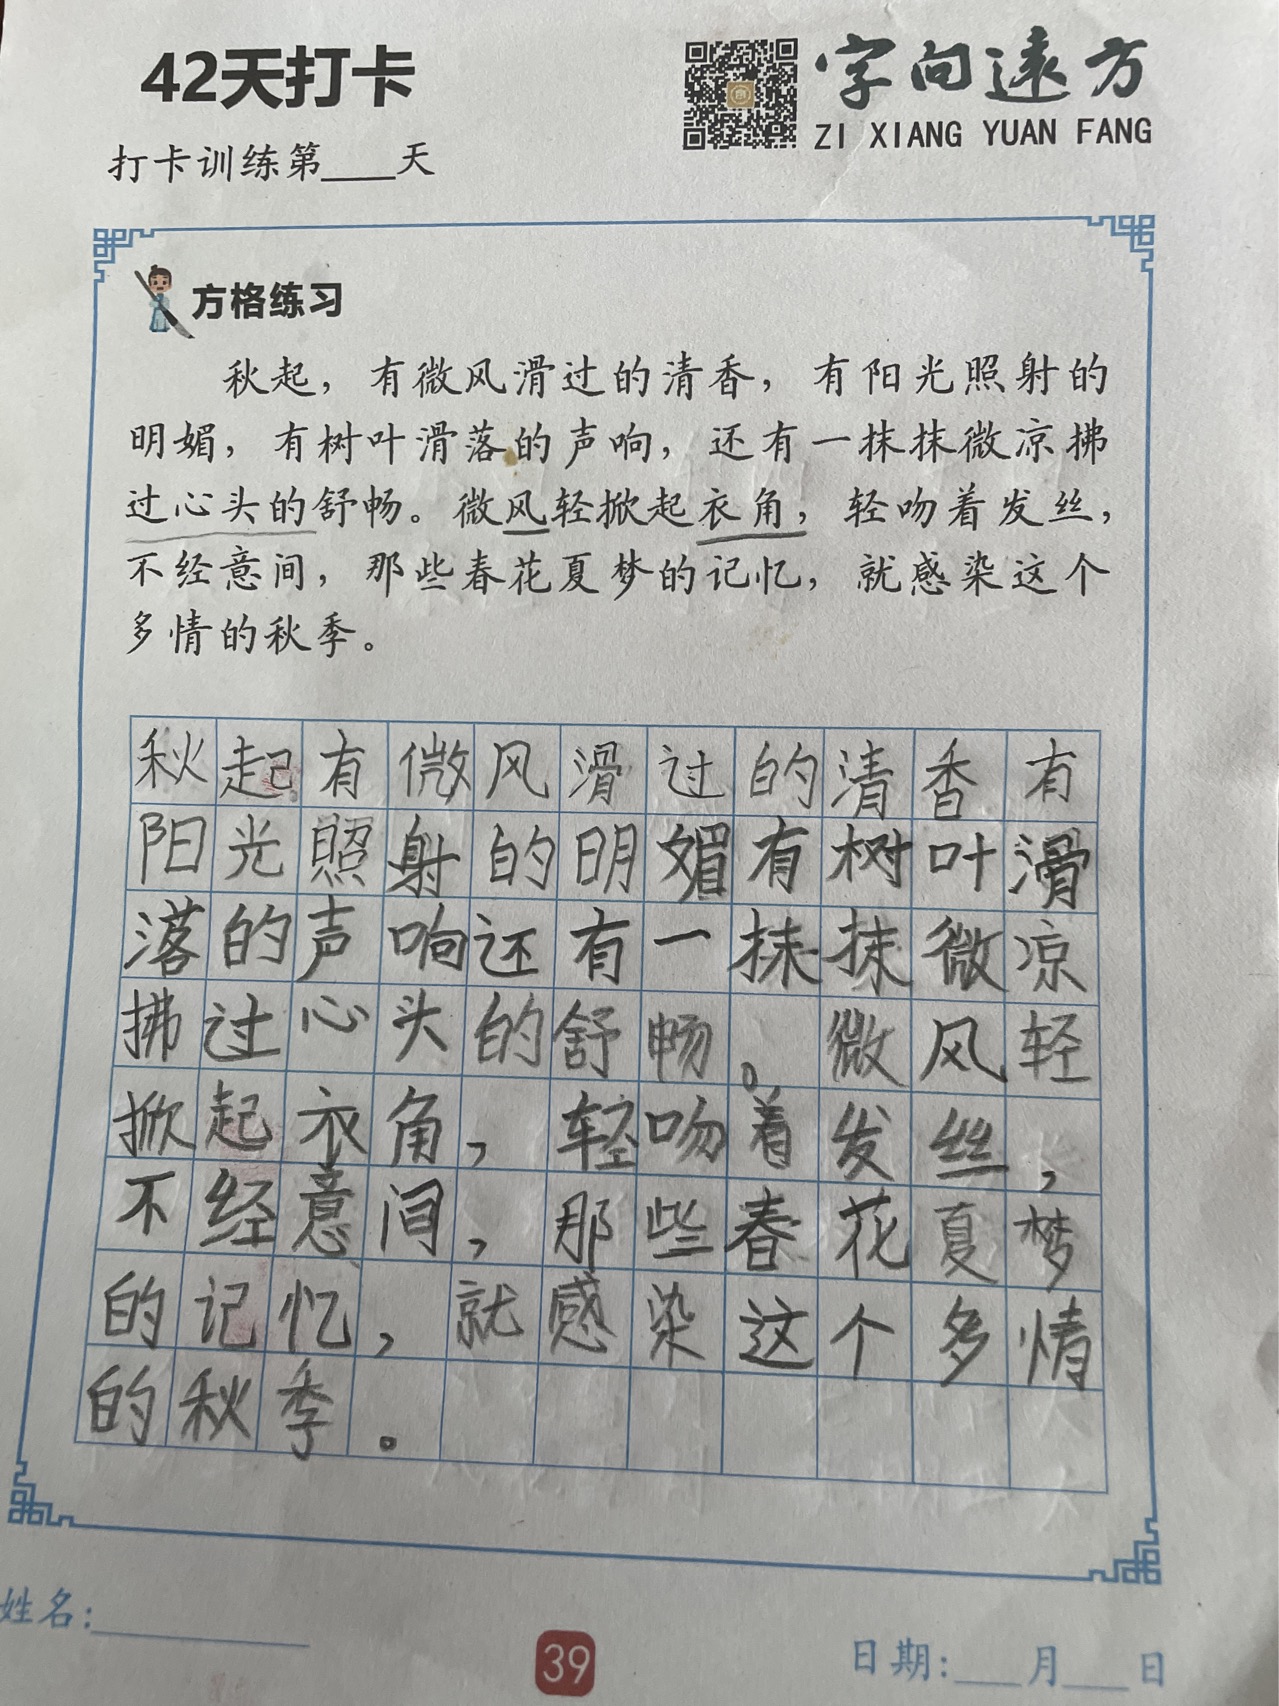 42天打卡
字向遠方
ZI XIANG YUAN FANG
打卡训练第____天
方格练习
秋起，有微风滑过的清香，有阳光照射的
明媚，有树叶滑落的声响，还有一抹抹微凉拂
过心头的舒畅。微风轻掀起衣角，轻吻着发丝，
不经意间，那些春花夏梦的记忆，就感染这个
多情的秋季。
秋起有微风滑过的清香有
阳光照射的明媚有树叶滑
落的声响还有一抹抹微凉
拂过心头的舒畅。微风轻
掀起衣角，轻吻着发丝，
不经意间，那些春花夏梦
的记忆，就感染这个多情
的秋季。
姓名:________
39
日期:___月___日